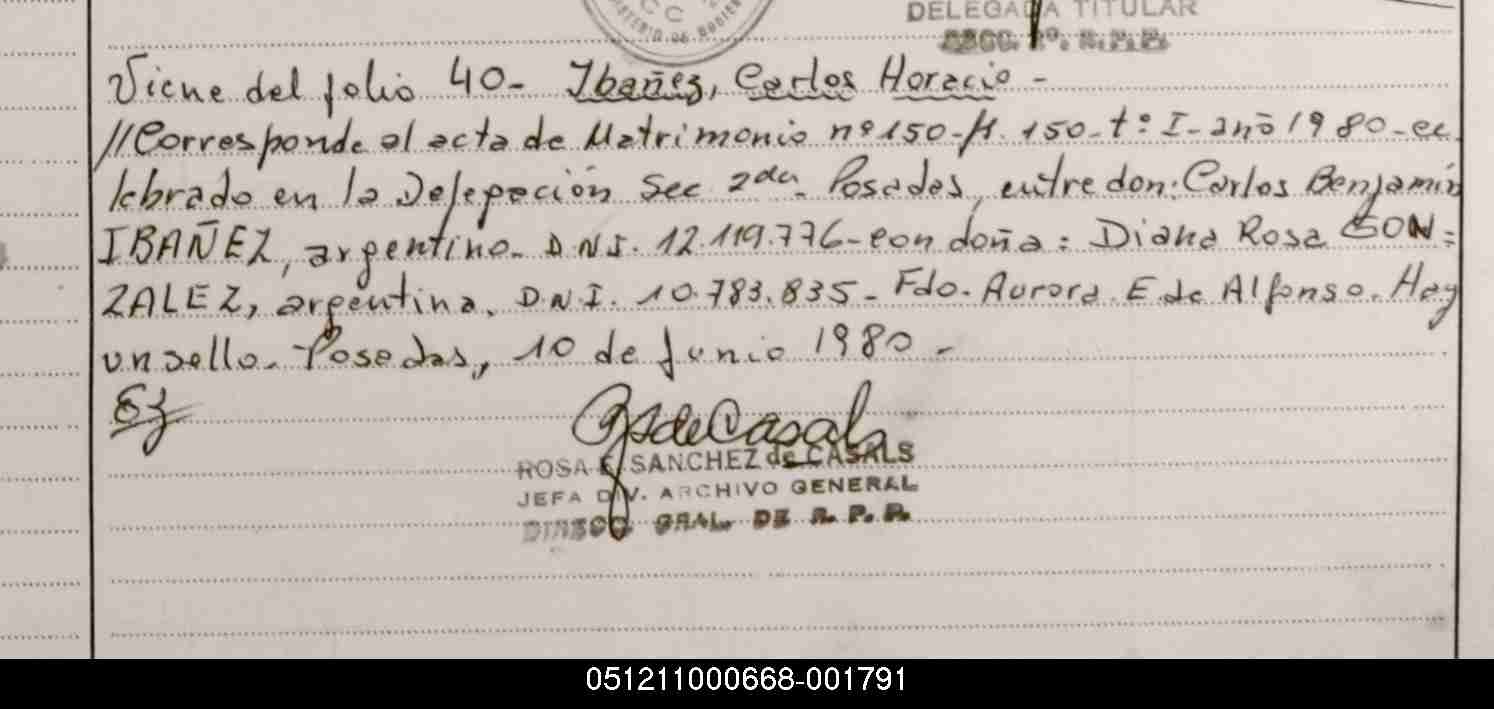 DELEGADA TITULAR
Viene del folio 40- Ibañez, Carlos Horacio -
//Corresponde al acta de Matrimonio nº 150-fº. 150-tº I-año 1980-ce
lebrado en la Delegación Sec 2da. Posadas, entre don: Carlos Benjamin
IBAÑEZ, argentino. D.N.I. 12.119.776-con doña: Diana Rosa GON=
ZALEZ, argentina. D.N.I. 10.783.835- Fdo. Aurora E. de Alfonso. Hay
un sello. Posadas, 10 de Junio 1980 -
RSdeCasals
ROSA E. SANCHEZ de CASALS
JEFA DIV. ARCHIVO GENERAL
DIRECC. GRAL. DE R. P. P.
051211000668-001791